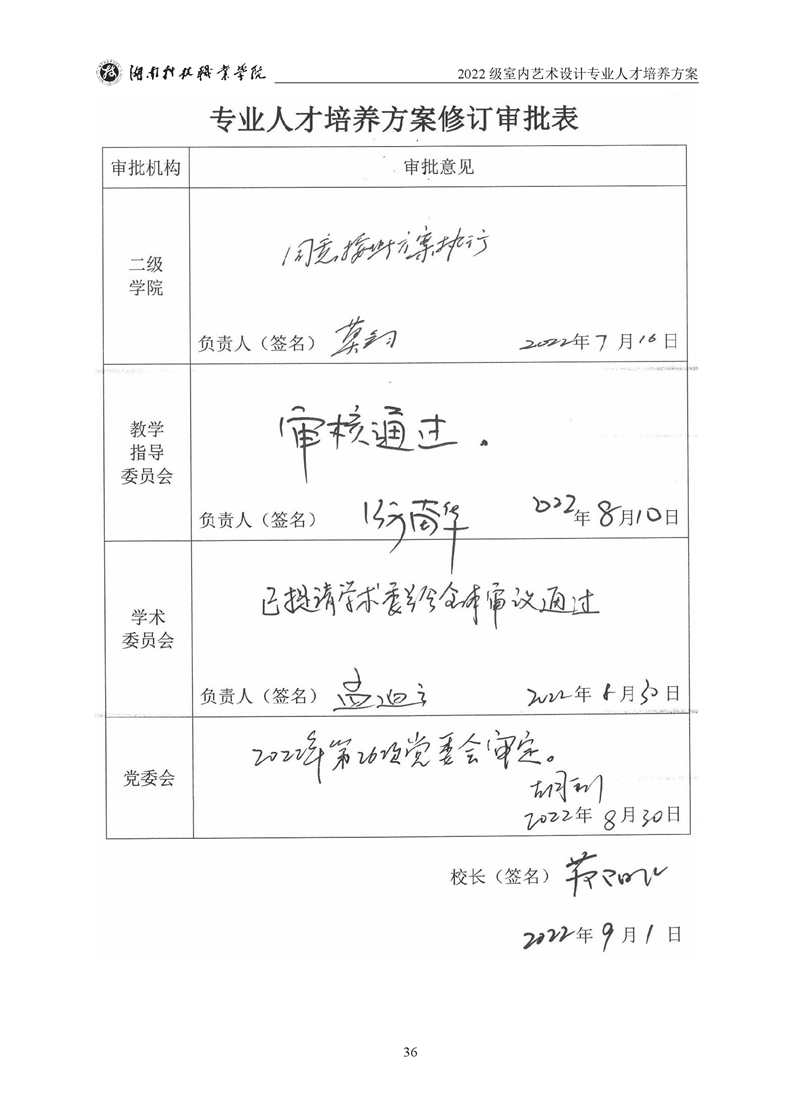 湖南科技职业学院
2022 级室内艺术设计专业人才培养方案
专业人才培养方案修订审批表
审批机构
审批意见
二级
学院
同意按此方案执行
负责人（签名）
2022年7月16日
教学
指导
委员会
审核通过。
负责人（签名）
2022年8月10日
学术
委员会
已提请学术委员会全体审议通过
负责人（签名）
2022年8月30日
党委会
2022年第26次党委会审定。
2022年8月30日
校长（签名）
2022年9月1日
36